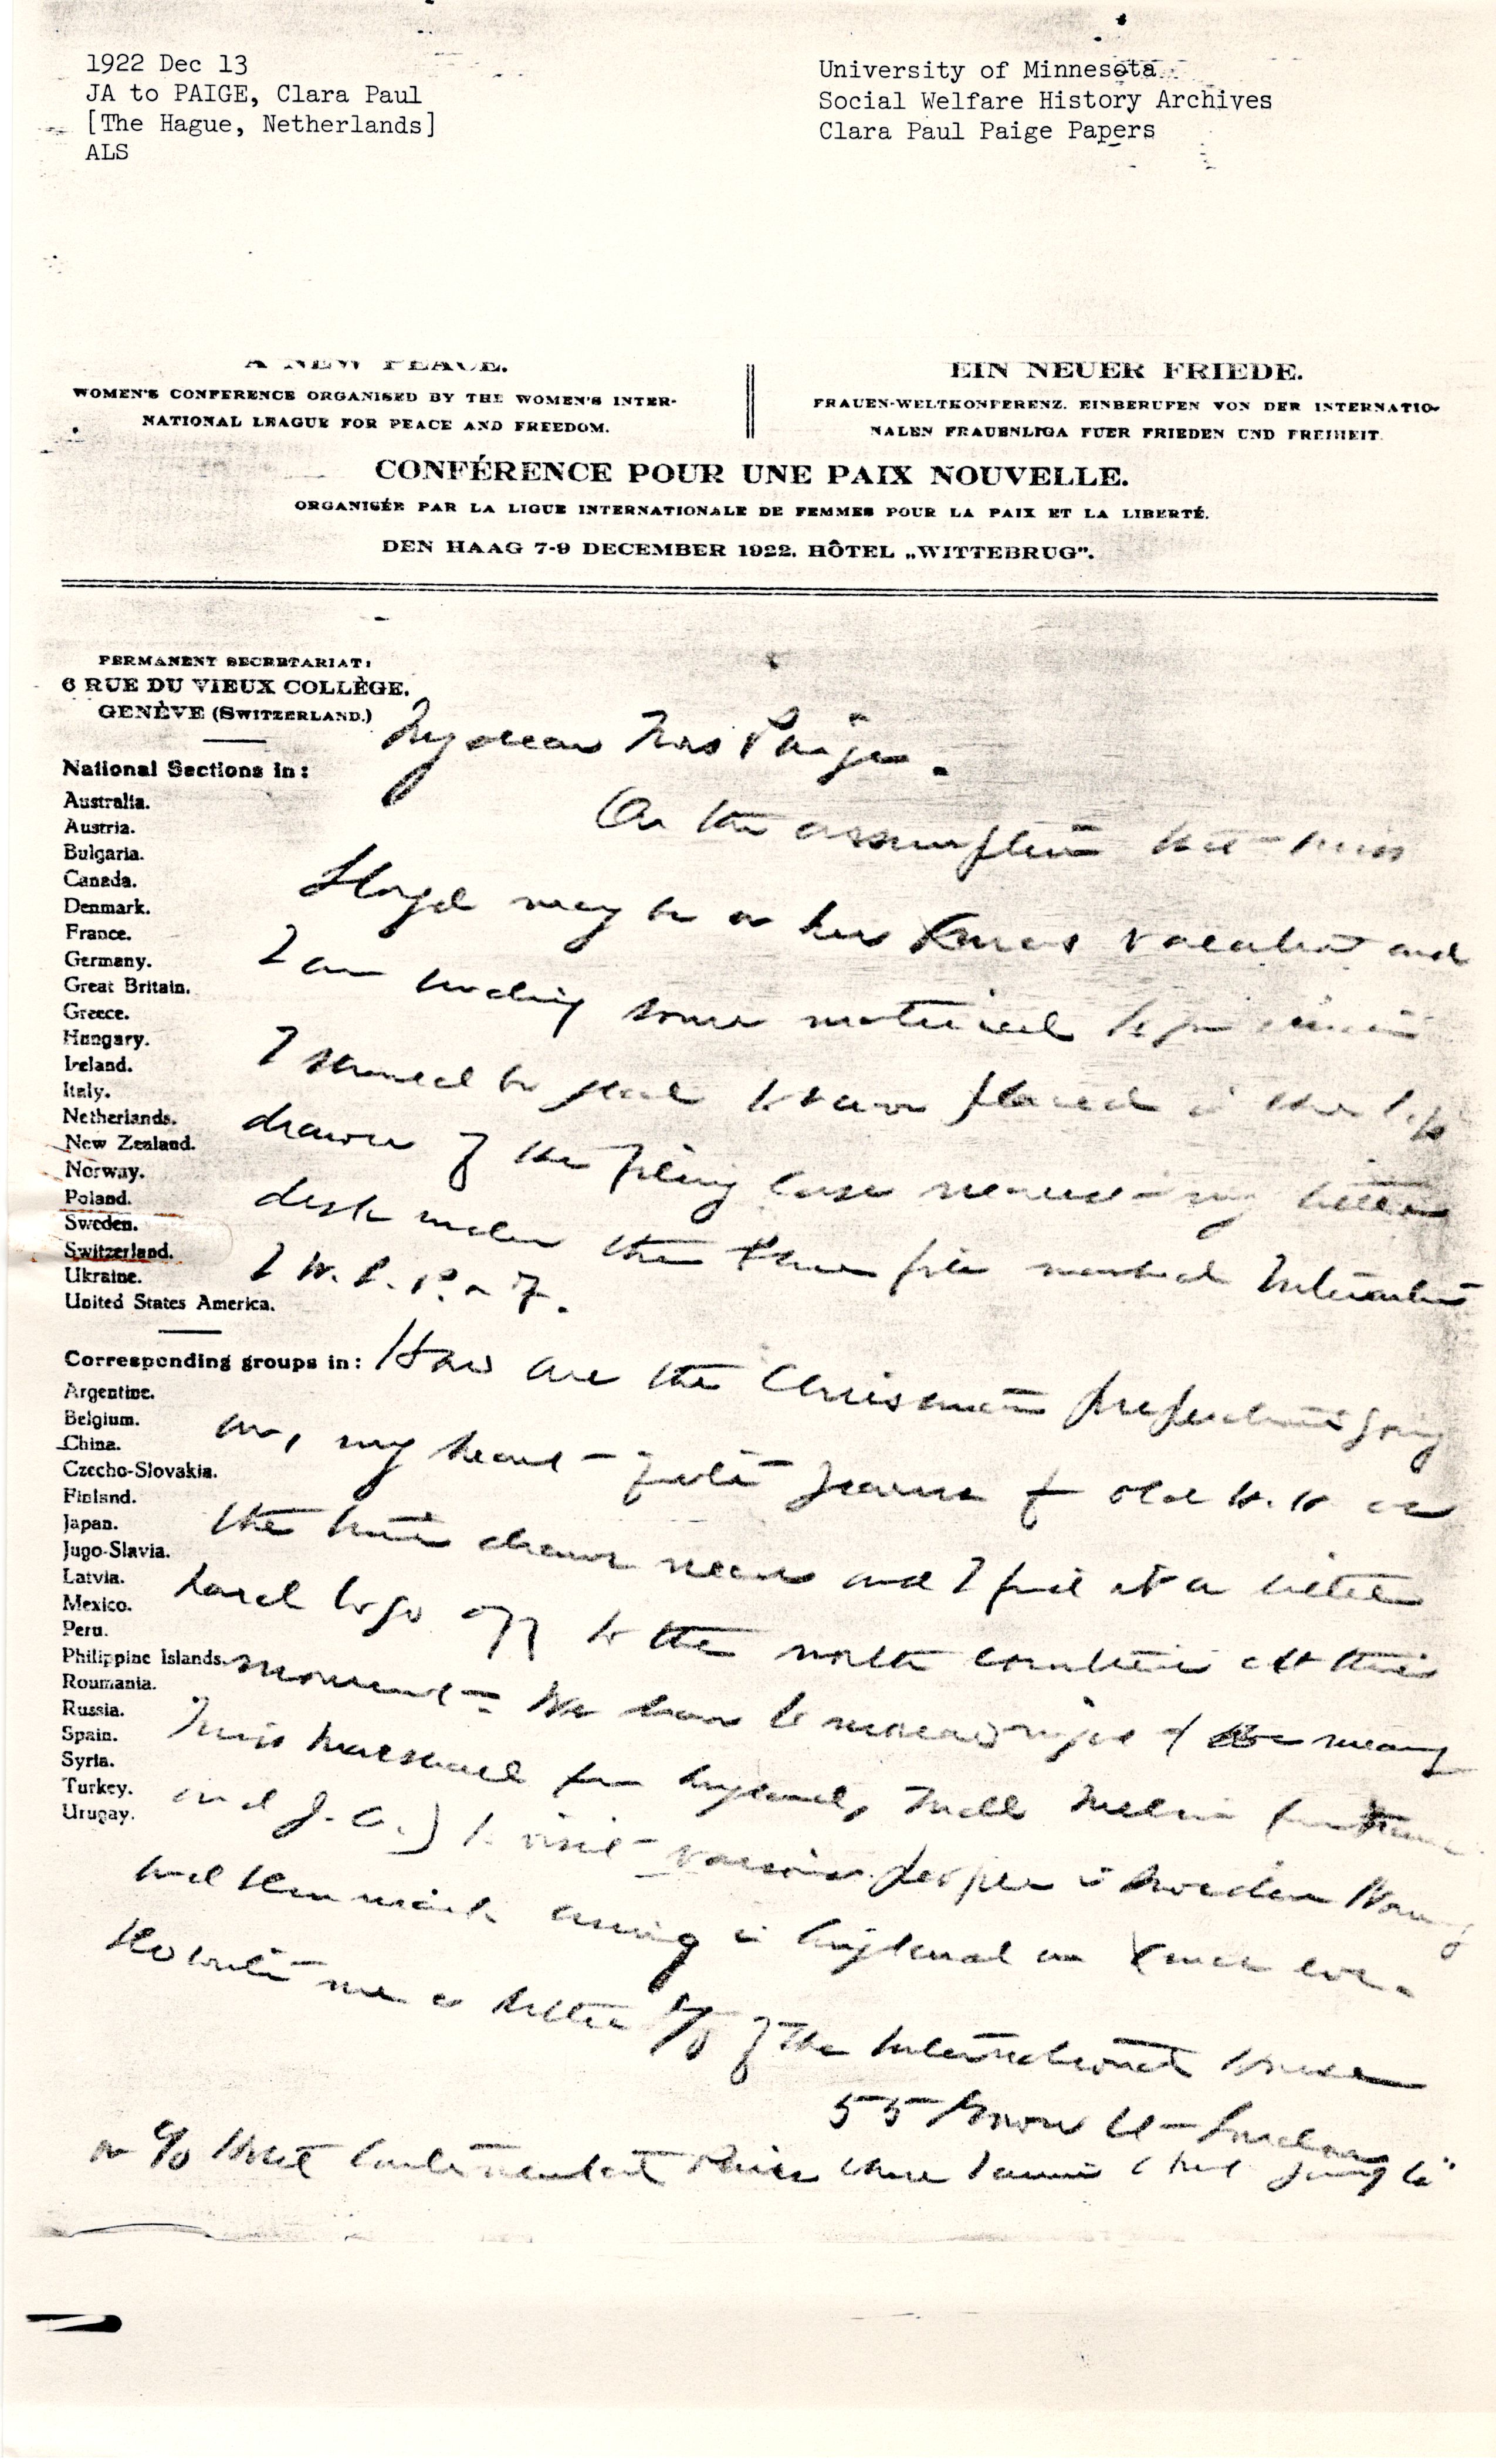 1922 Dec 13
JA to PAIGE, Clara Paul
[The Hague, Netherlands]
ALS
University of Minnesota
Social Welfare History Archives
Clara Paul Paige Papers
A NEW PEACE.
WOMEN'S CONFERENCE ORGANISED BY THE WOMEN'S INTER-
NATIONAL LEAGUE FOR PEACE AND FREEDOM.
EIN NEUER FRIEDE.
FRAUEN-WELTKONFERENZ. EINBERUFEN VON DER INTERNATIO-
NALEN FRAUENLIGA FUER FRIEDEN UND FREIHEIT.
CONFÉRENCE POUR UNE PAIX NOUVELLE.
ORGANISÉE PAR LA LIGUE INTERNATIONALE DE FEMMES POUR LA PAIX ET LA LIBERTÉ.
DEN HAAG 7-9 DECEMBER 1922. HÔTEL „WITTEBRUG".
PERMANENT SECRETARIAT:
6 RUE DU VIEUX COLLÈGE.
GENÈVE (SWITZERLAND.)
National Sections in:
Australia.
Austria.
Bulgaria.
Canada.
Denmark.
France.
Germany.
Great Britain.
Greece.
Hungary.
Ireland.
Italy.
Netherlands.
New Zealand.
Norway.
Poland.
Sweden.
Switzerland.
Ukraine.
United States America.
Corresponding groups in:
Argentine.
Belgium.
China.
Czecho-Slovakia.
Finland.
Japan.
Jugo-Slavia.
Latvia.
Mexico.
Peru.
Philippine Islands.
Roumania.
Russia.
Spain.
Syria.
Turkey.
Urugay.
My dear Mrs Paige.
On the assumption that Miss
Lloyd may be on her Xmas vacation and
I am sending some material
I should be glad to have placed in the top
drawer of the filing case nearest my little
desk under the file marked International
I W. L. P. & F.
How are the Christmas preparations going
on, my heart quite yearns for old H. H as
the time draws near and I find it a little
hard to go off to the north countries at this
moment. We have to
Miss Marshall for England, Mdlle Melin for France
and J. A.) to visit various people in Sweden Norway
and Denmark arriving in England on Xmas eve.
Do write me a letter c/o of the International House
55 Gower St London
or c/o Hotel Continental Paris where